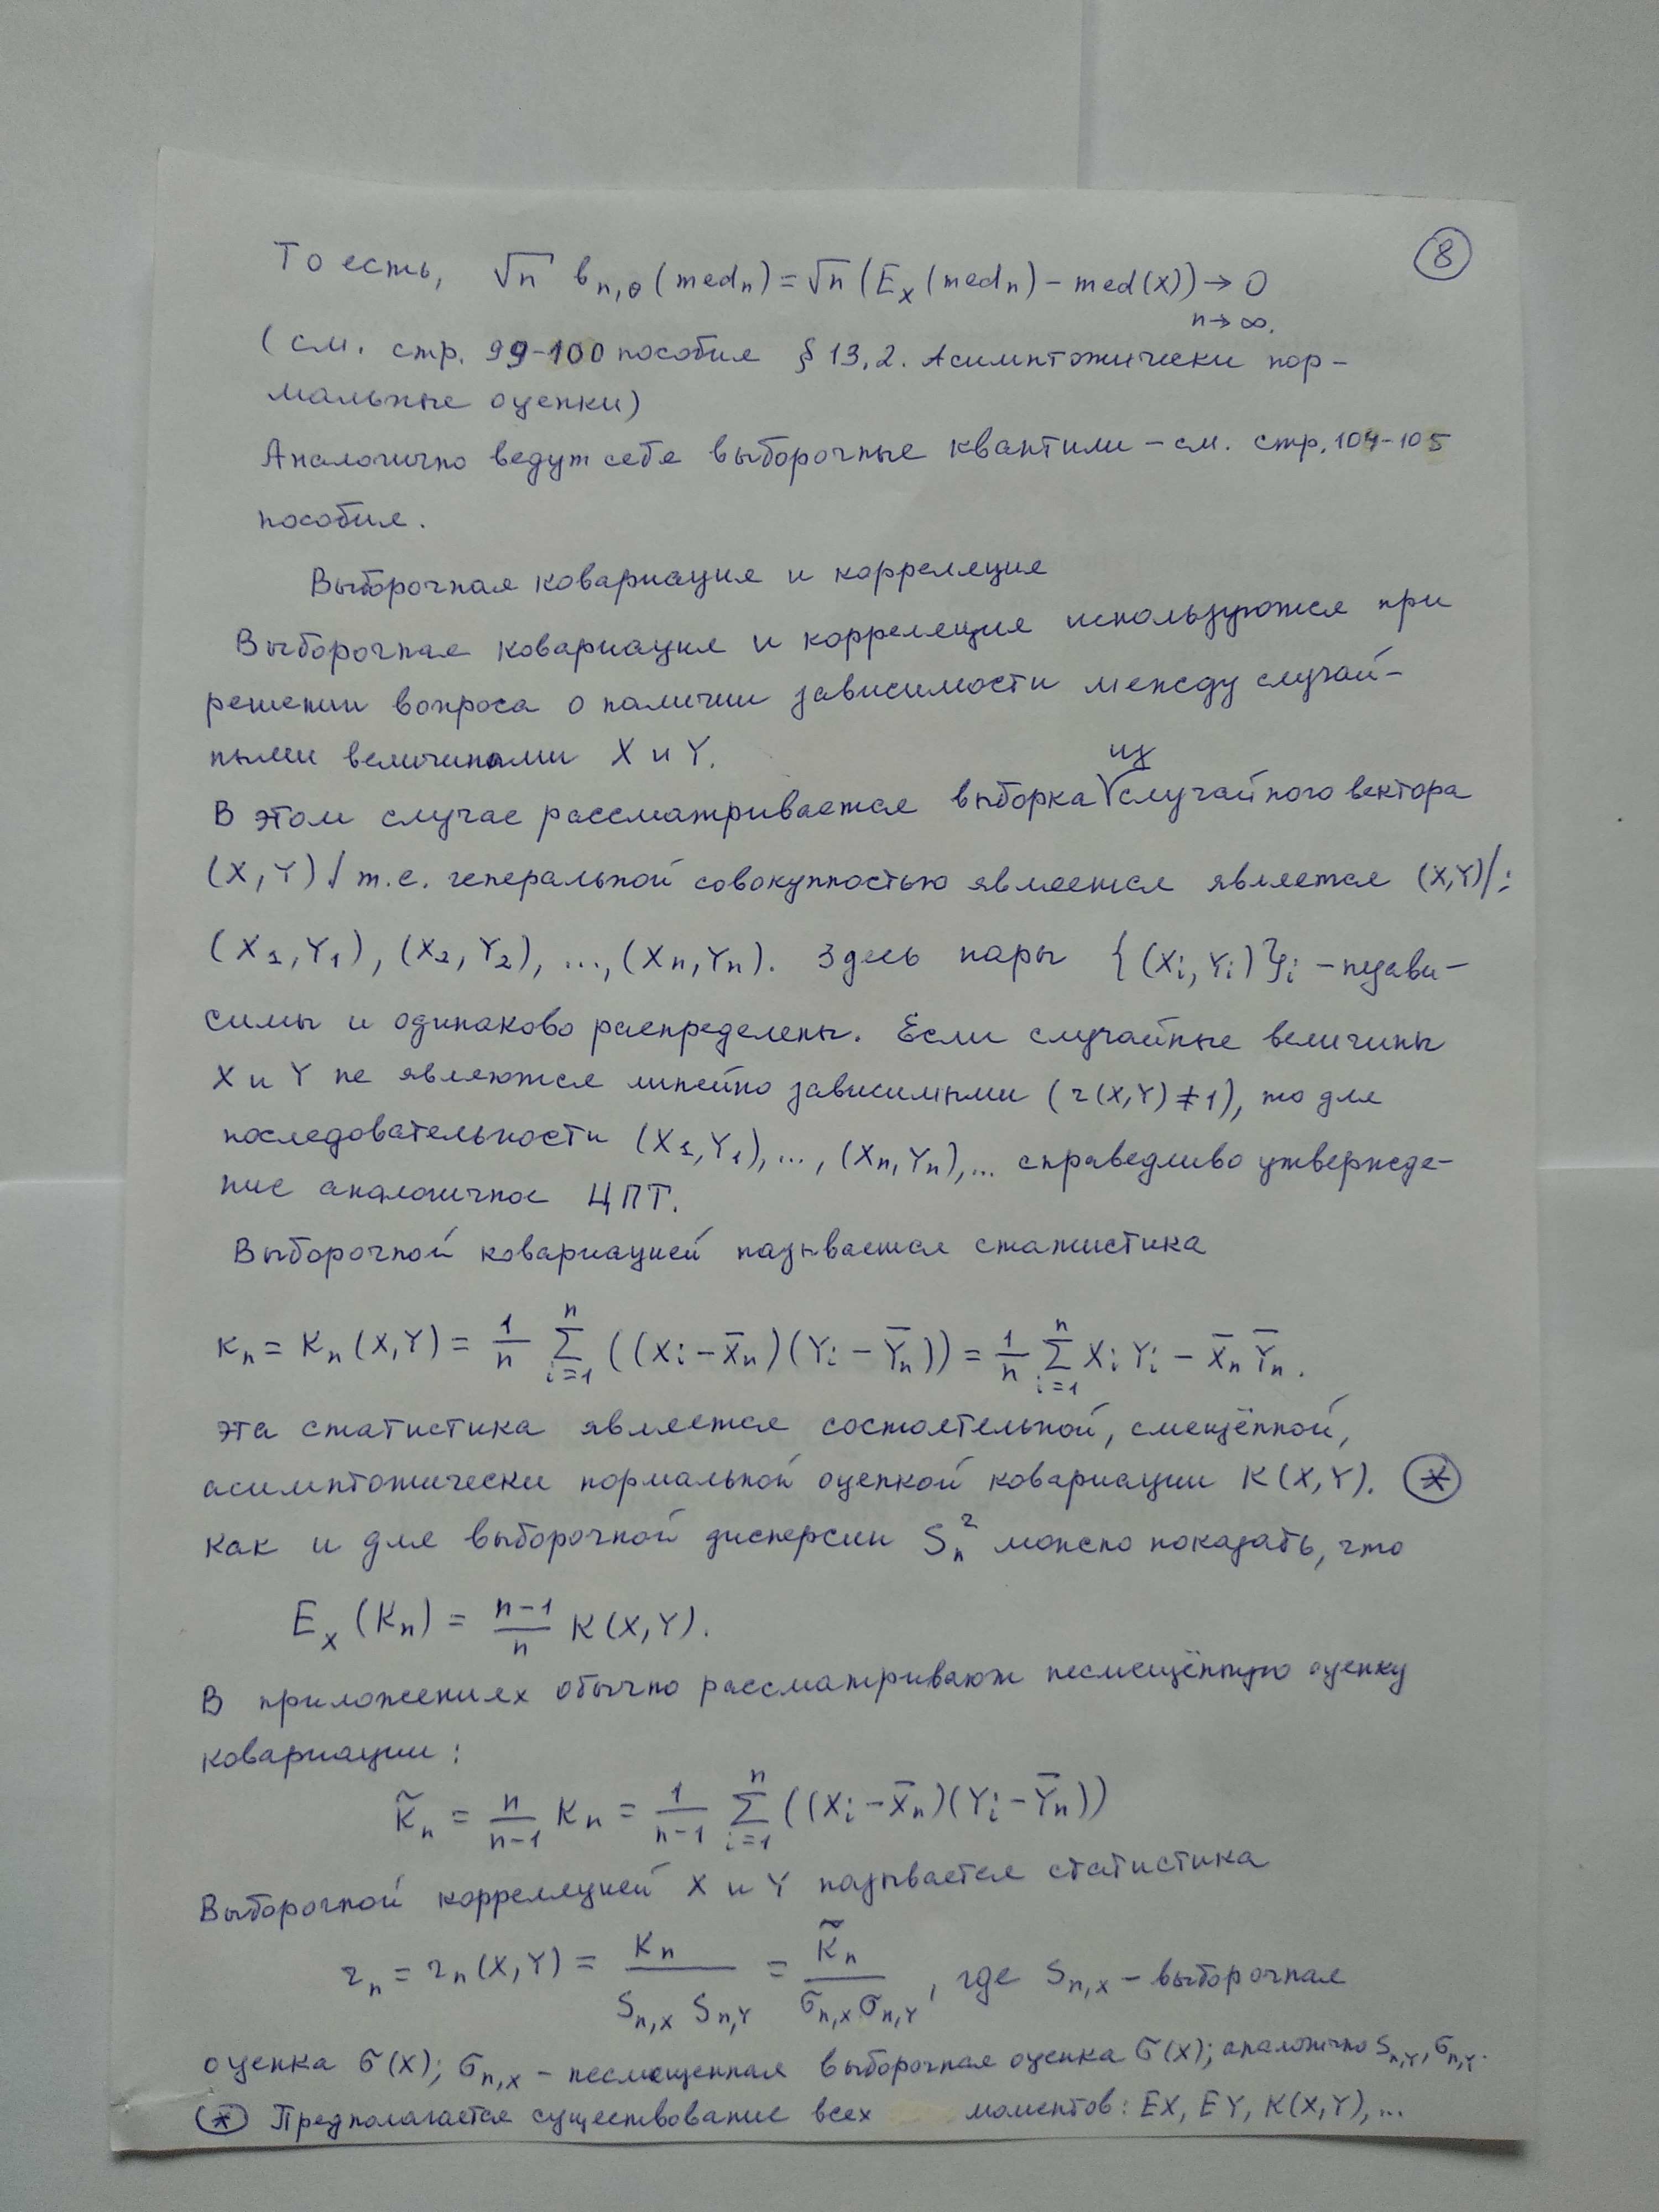 8
То есть, √n b_{n,θ}(med_n) = √n (E_X(med_n) - med(X)) → 0
n→∞.
(см. стр. 99-100 пособия § 13.2. Асимптотически нор-
мальные оценки)
Аналогично ведут себя выборочные квантили - см. стр. 104-105
пособия.
Выборочная ковариация и корреляция
Выборочная ковариация и корреляция используются при
решении вопроса о наличии зависимости между случай-
ными величинами X и Y.
В этом случае рассматривается выборка из случайного вектора
(X, Y) / т.е. генеральной совокупностью является является (X,Y)/:
(X_1, Y_1), (X_2, Y_2), ..., (X_n, Y_n). Здесь пары {(X_i, Y_i)}_i - незави-
симы и одинаково распределены. Если случайные величины
X и Y не являются линейно зависимыми (r(X,Y) ≠ 1), то для
последовательности (X_1, Y_1), ..., (X_n, Y_n), ... справедливо утвержде-
ние аналогичное ЦПТ.
Выборочной ковариацией называется статистика
K_n = K_n(X,Y) = \frac{1}{n} \sum_{i=1}^{n} ((X_i - \bar{X}_n)(Y_i - \bar{Y}_n)) = \frac{1}{n} \sum_{i=1}^{n} X_i Y_i - \bar{X}_n \bar{Y}_n.
Эта статистика является состоятельной, смещённой,
асимптотически нормальной оценкой ковариации K(X,Y). (*)
Как и для выборочной дисперсии S_n^2 можно показать, что
E_X(K_n) = \frac{n-1}{n} K(X,Y).
В приложениях обычно рассматривают несмещённую оценку
ковариации:
\tilde{K}_n = \frac{n}{n-1} K_n = \frac{1}{n-1} \sum_{i=1}^{n} ((X_i - \bar{X}_n)(Y_i - \bar{Y}_n))
Выборочной корреляцией X и Y называется статистика
r_n = r_n(X,Y) = \frac{K_n}{S_{n,X} S_{n,Y}} = \frac{\tilde{K}_n}{σ_{n,X} σ_{n,Y}}, где S_{n,X} - выборочная
оценка σ(X); σ_{n,X} - несмещенная выборочная оценка σ(X); аналогично S_{n,Y}, σ_{n,Y}.
(*) Предполагается существование всех моментов: EX, EY, K(X,Y), ...